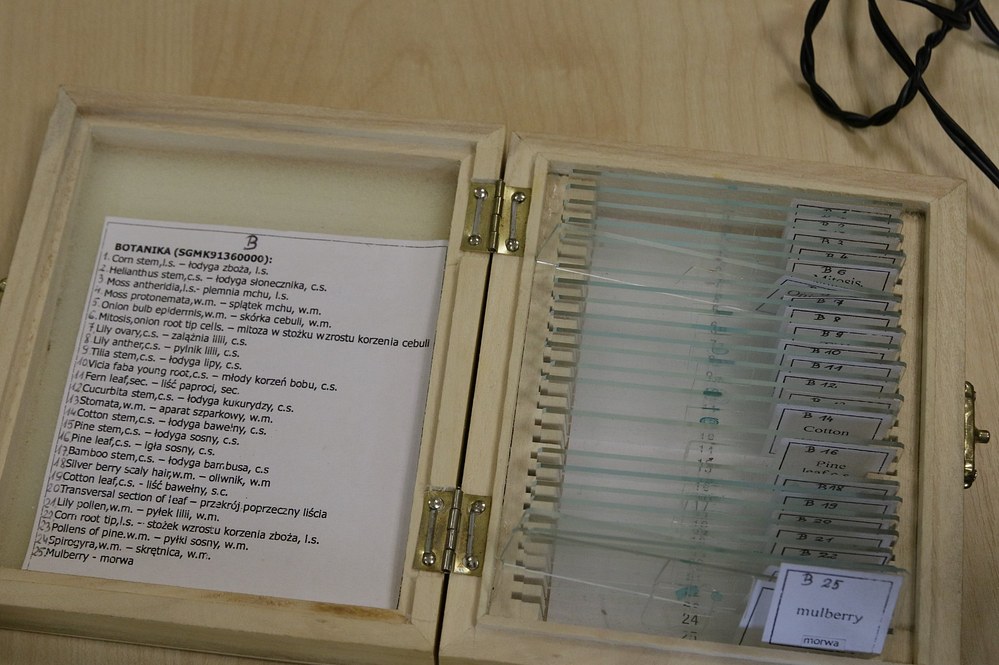 B
BOTANIKA (SGMK91360000):
1. Corn stem,l.s. – łodyga zboża, l.s.
2. Helianthus stem,c.s. – łodyga słonecznika, c.s.
3 Moss antheridia,l.s.- plemnia mchu, l.s.
4. Moss protonemata,w.m. – splątek mchu, w.m.
5. Onion bulb epidermis,w.m. – skórka cebuli, w.m.
6. Mitosis,onion root tip cells. – mitoza w stożku wzrostu korzenia cebuli
7. Lily ovary,c.s. – zalążnia lilii, c.s.
8. Lily anther,c.s. – pylnik lilii, c.s.
9. Tilia stem,c.s. – łodyga lipy, c.s.
10. Vicia faba young root,c.s. – młody korzeń bobu, c.s.
11 Fern leaf,sec. – liść paproci, sec.
12 Cucurbita stem,c.s. – łodyga kukurydzy, c.s.
13 Stomata,w.m. – aparat szparkowy, w.m.
14 Cotton stem,c.s. – łodyga bawełny, c.s.
15 Pine stem,c.s. – łodyga sosny, c.s.
16 Pine leaf,c.s. – igła sosny, c.s.
17 Bamboo stem,c.s. – łodyga bambusa, c.s
18 Silver berry scaly hair,w.m. – oliwnik, w.m
19 Cotton leaf,c.s. - liść bawełny, s.c.
20 Transversal section of leaf – przekrój poprzeczny liścia
21 Lily pollen,w.m. – pyłek lilii, w.m.
22 Corn root tip,l.s. – stożek wzrostu korzenia zboża, l.s.
23 Pollens of pine.w.m. – pyłki sosny, w.m.
24 Spirogyra,w.m. – skrętnica, w.m.
25 Mulberry - morwa
B 6
B 7
B 8
B 9
B 10
B 11
B 12
B 14
Cotton
B 16
Pine
leaf c.s
B 18
B 19
B 20
B 21
B 22
B 25
mulberry
morwa
24
25